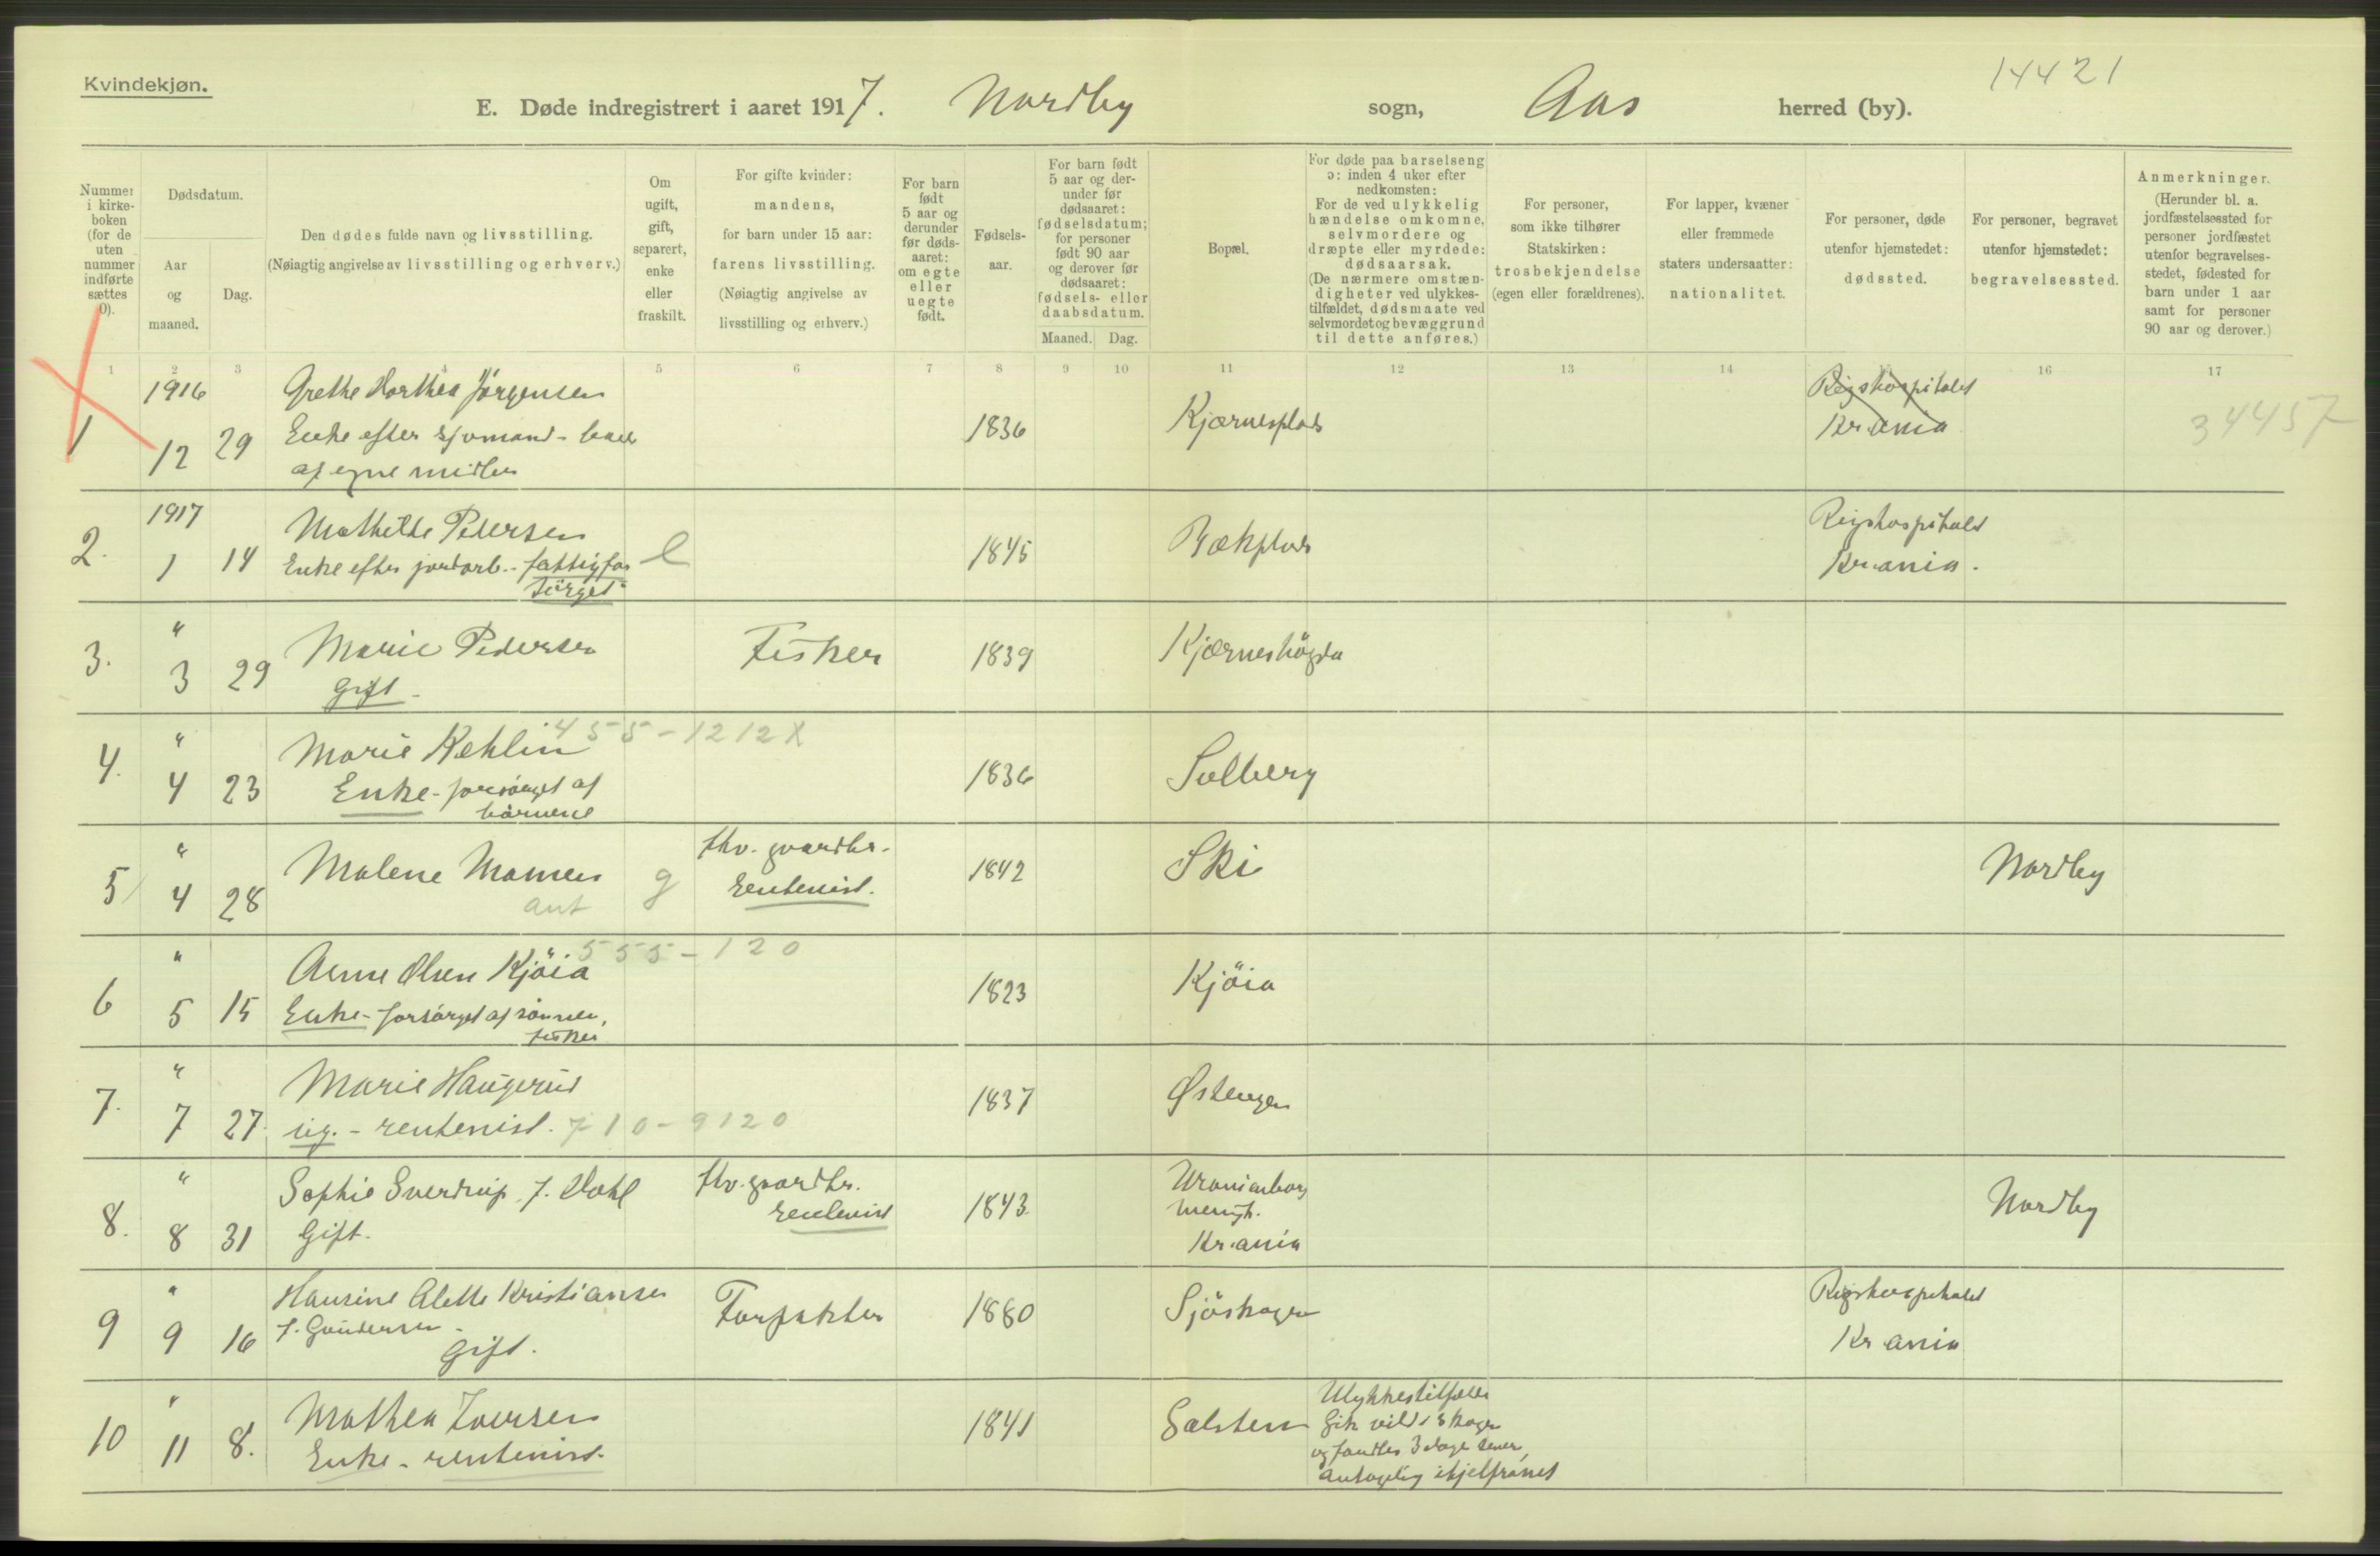 Kvindekjøn.
14421
E. Døde indregistrert i aaret 1917. Nordby sogn, Aas herred (by).
Nummer i kirke- boken (for de uten nummer indførte sættes 0).
Dødsdatum.
Aar og maaned.
Dag.
Den dødes fulde navn og livsstilling.
(Nøiagtig angivelse av livsstilling og erhverv.)
Om ugift, gift, separert, enke eller fraskilt.
For gifte kvinder: mandens, for barn under 15 aar: farens livsstilling. (Nøiagtig angivelse av livsstilling og erhverv.)
For barn født 5 aar og derunder før døds- aaret: om egte eller uegte født.
Fødsels- aar.
For barn født 5 aar og der- under før dødsaaret: fødselsdatum; for personer født 90 aar og derover før dødsaaret: fødsels- eller daabsdatum.
Maaned. Dag.
Bopæl.
For døde paa barselseng ɔ: inden 4 uker efter nedkomsten: For de ved ulykkelig hændelse omkomne, selvmordere og dræpte eller myrdede: dødsaarsak. (De nærmere omstæn- digheter ved ulykkes- tilfældet, dødsmaate ved selvmordet og bevæggrund til dette anføres.)
For personer, som ikke tilhører Statskirken: trosbekjendelse (egen eller forældrenes).
For lapper, kvæner eller fremmede staters undersaatter: nationalitet.
For personer, døde utenfor hjemstedet: dødssted.
For personer, begravet utenfor hjemstedet: begravelsessted.
Anmerkninger. (Herunder bl. a. jordfæstelsessted for personer jordfæstet utenfor begravelses- stedet, fødested for barn under 1 aar samt for personer 90 aar og derover.)
1 2 3 4 5 6 7 8 9 10 11 12 13 14 15 16 17
1 1916 12 29 Grethe Dorthea Jörgensen
Enke efter sjömand - levede
af egne midler
1836 Kjærnesplads
Rigshospitalet
Kr.ania
34457
2. 1917 1 14 Mathilde Petersen
Enke efter jordarb. - fattigfor
sörget
e 1845 Bækplads
Rigshospitalet
Kr.ania.
3. " 3 29 Marie Pedersen
Gift.
Fisker 1839 Kjærneshögda
4. " 4 23 Marie Kehlin 455-1212X
Enke - forsörget af
börnene
1836 Solberg
5 " 4 28 Malene Mamen
ant
g fhv. gaardbr.
rentenist.
1842 Ski Nordby
6 " 5 15 Anne Olsen Kjöia 555-120
Enke - forsörget af sönnen,
fisker
1823 Kjöia
7. " 7 27 Marie Haugerud
ug. - rentenist. 710-9120
1837 Østengen
8. " 8 31 Sophie Sverdrup f. Dahl
Gift.
fhv. gaardbr.
rentenist
1843 Uranienborg
menigh.
Kr.ania
Nordby
9 " 9 16 Hansine Alette Kristiansen
f. Gundersen
Gift.
Forpakter 1880 Sjöskogen
Rigshospitalet
Kr ania
10 " 11 8. Mathea Iversen
Enke - rentenist.
1841 Galsten
Ulykkestilfælde
Gik vild i skogen
og fandtes 3 dage senere,
antagelig ihjelfrosset